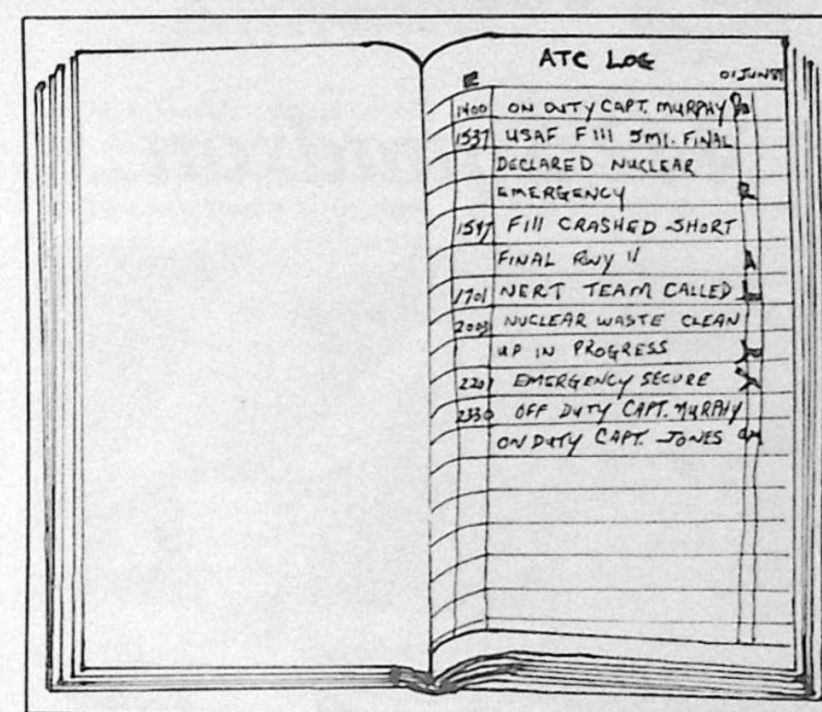 ATC LOG
01 JUN
1400 ON DUTY CAPT. MURPHY
1537 USAF F111 5MI. FINAL
DECLARED NUCLEAR
EMERGENCY
1547 F111 CRASHED SHORT
FINAL RWY 11
1701 NERT TEAM CALLED
2003 NUCLEAR WASTE CLEAN
UP IN PROGRESS
2201 EMERGENCY SECURE
2330 OFF DUTY CAPT. MURPHY
ON DUTY CAPT. JONES